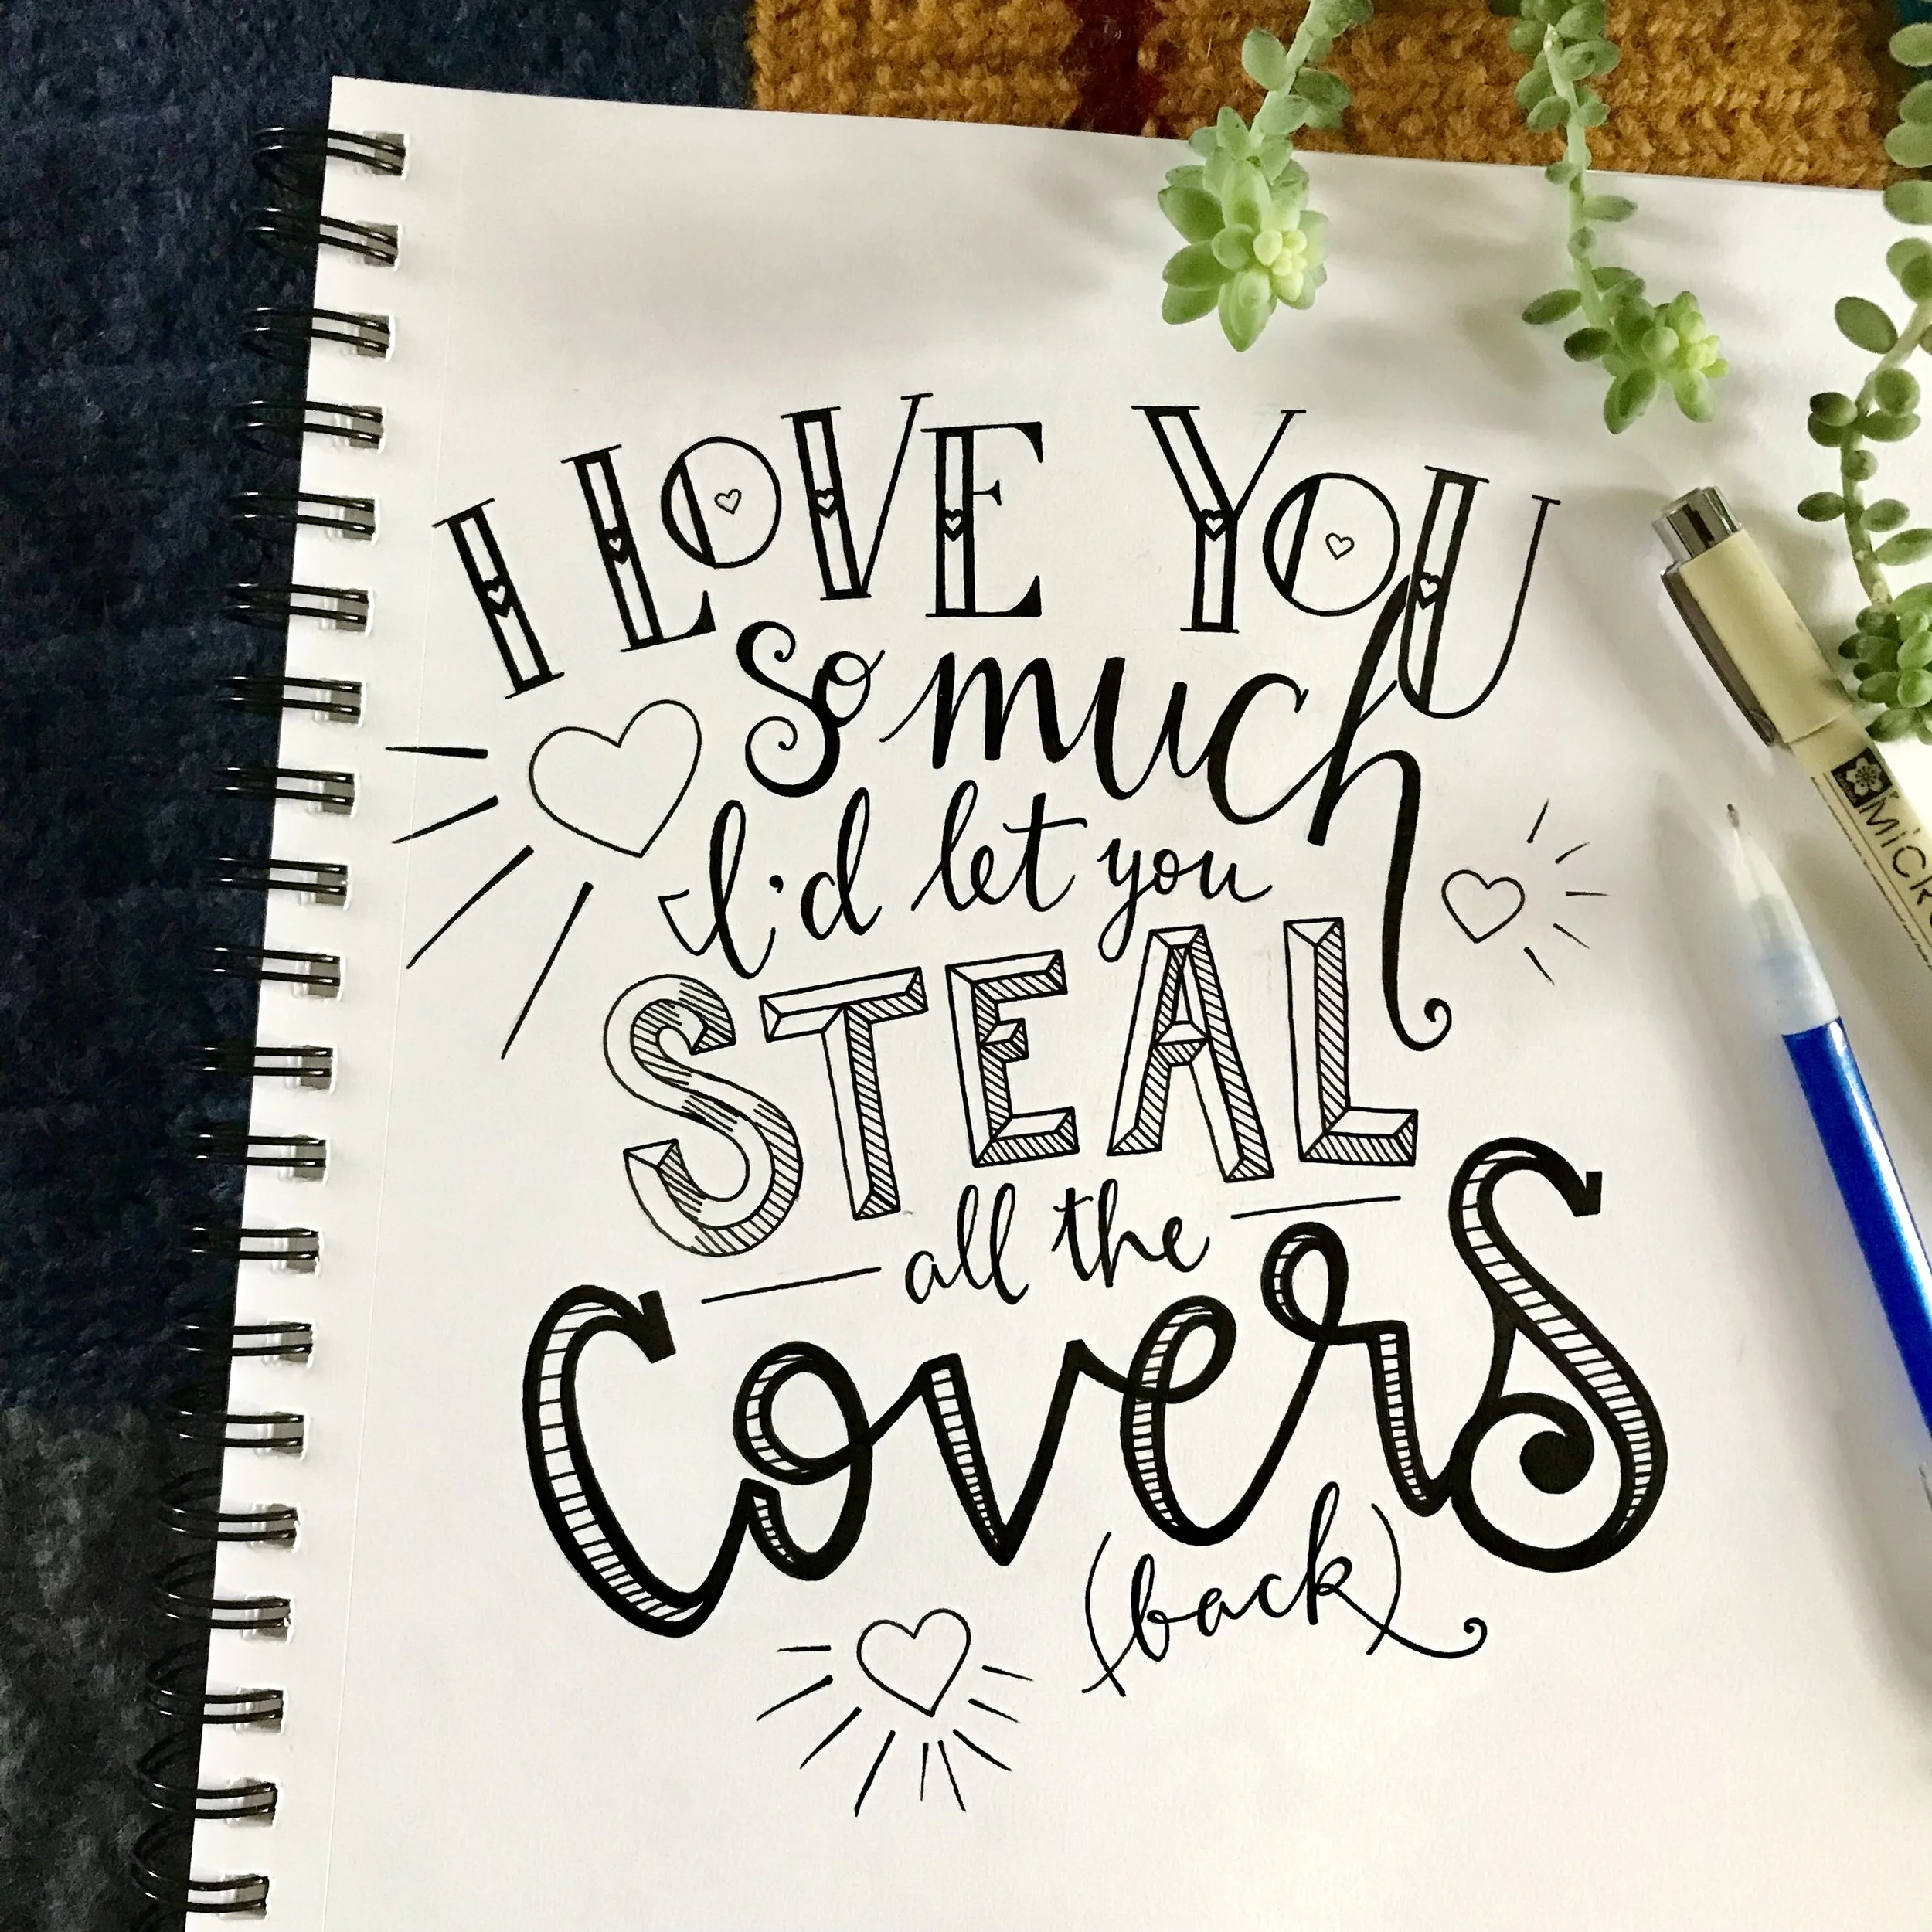 I LOVE YOU
So much
I'd let you
STEAL
all the
CoverS
(back)
MICR